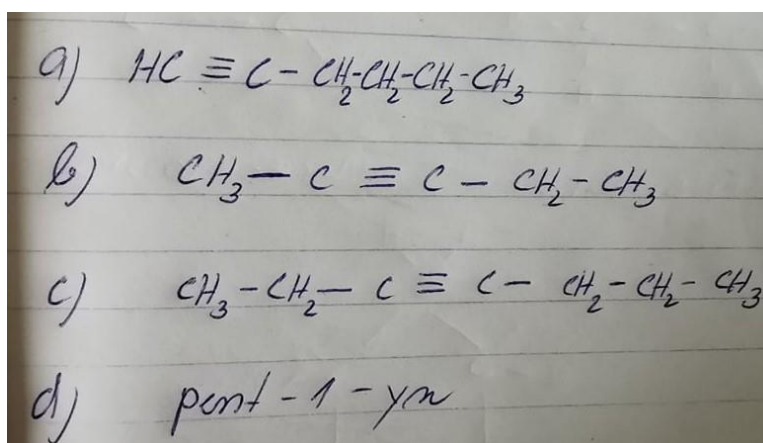 a) HC ≡ C - CH₂-CH₂-CH₂-CH₃
b) CH₃ - C ≡ C - CH₂ - CH₃
c) CH₃ - CH₂ - C ≡ C - CH₂ - CH₂ - CH₃
d) pent - 1 - yn